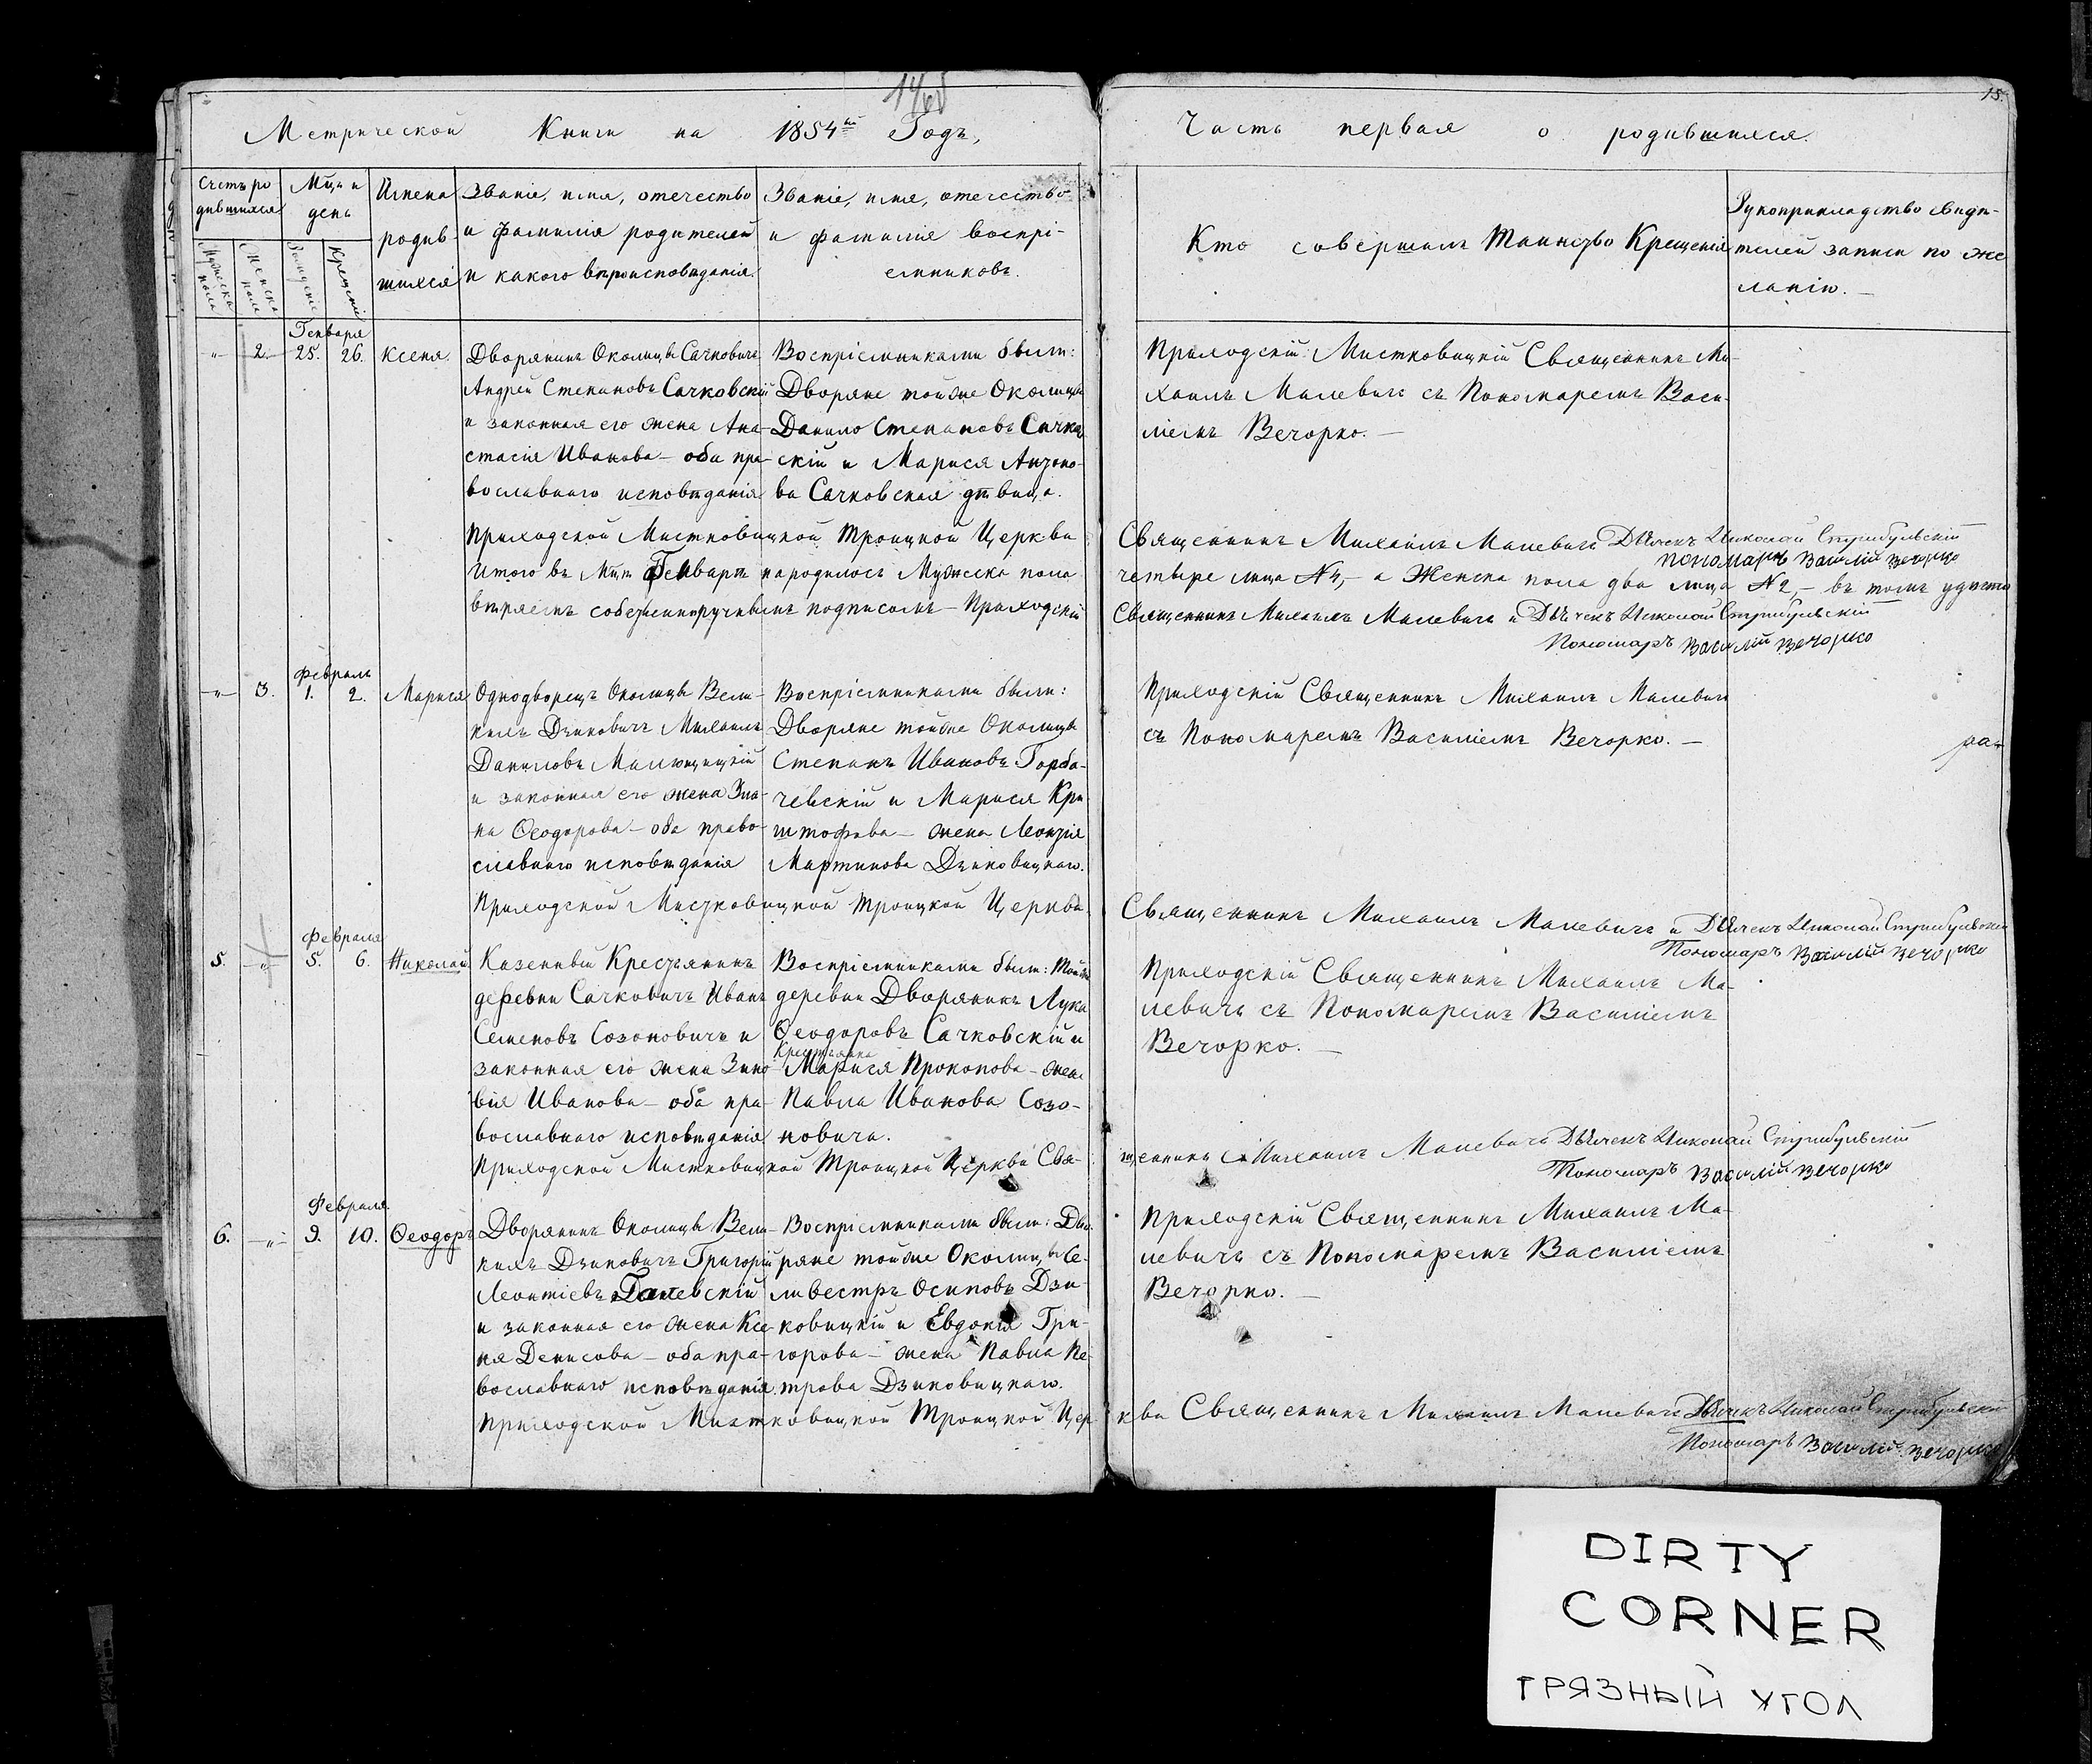 15.
Метрической Книги на 1854й Годъ,
Часть первая о родившихся.
Счетъ ро
дившихся
Мужеска
пола
Женска
пола
Мцъ и
день
Рожденіе
Крещеніе
Имена
родив-
шихся
Званіе, имя, отечество
и фамилія родителей
и какого вѣроисповѣданія.
Званіе, имя, отечество
и фамиліе воспрі-
емниковъ.
Кто совершилъ Таинство Крещенія
Рукоприкладство свидѣ-
телей записи по же
ланію. —
Генваря
„ 2. 25. 26. Ксенія.
Дворянинъ Околицы Сачковичъ
Андрей Степановъ Сачковскій
и законная его жена Ана-
стасія Иванова – оба пра-
вославнаго исповѣданія
Воспріемниками были:
Дворяне тойже Околицы
Данило Степановъ Сачков
скій и Марися Антоно-
ва Сачковская дѣвица.
Приходскій Мистковицкій Священникъ Ми-
хаилъ Малевичъ съ Пономаремъ Васи-
ліемъ Вечорко. —
Приходской Мистковицкой Троицкой Церкви
Священникъ Михаилъ Малевичъ Дьячекъ Николай Стрибульскій
пономаръ Василій Вечорко
Итого въ Мцѣ Генварѣ народилось Мужеска пола
четыре лица №4,– а Женска пола два лица №2,– въ томъ удосто
вѣряемъ собственноручнымъ подписомъ – Приходскій
Священникъ Михаилъ Малевичъ и Дьячекъ Николай Стрибульскій
Пономаръ Василій Вечорко
Февраль
„ 3. 1. 2. Марися
Однодворецъ Околицы Вели-
кихъ Дзиковичъ Михаилъ
Даниловъ Малющицкій
и законная его жена
Ѳеодорова – оба право-
славнаго исповѣданія
Воспріемниками были:
Дворяне тойже Околицы
Степанъ Ивановъ Горба-
чевскій и Марися Кри-
штофова – жена Леонзія
Мартинова Дзиковицкаго.
Приходскій Священникъ Михаилъ Малевичъ
съ Пономаремъ Василіемъ Вечорко. —
ра-
Приходской Мистковицкой Троицкой Церкви
Священникъ Михаилъ Малевичъ и Дьячекъ Николай Стрибульскій
Пономаръ Василій Вечорко
Февраля
5. „ 5. 6. Николай
Казенный Крестьянинъ
деревни Сачковичъ Иванъ
Семеновъ Созоновичъ и
законная его жена Зино
вія Иванова – оба пра-
вославнаго исповѣданія
Воспріемниками были: Тойже
деревни Дворянинъ Лука
Ѳеодоровъ Сачковскій и
Крестьянка
Марися Прокопова – жена
Павла Иванова Созо-
новича.
Приходскій Священникъ Михаилъ Ма-
левичъ съ Пономаремъ Василіемъ
Вечорко. —
Приходской Мистковицкой Троицкой Церкви Свя-
щенникъ Михаилъ Малевичъ Дьячекъ Николай Стрибульскій
Пономаръ Василій Вечорко
Февраля
6. „ 9. 10. Ѳеодоръ
Дворянинъ Околицы Вели-
кихъ Дзиковичъ Григорій
Леонтіевъ
и законная его жена Ксе-
нія Денисова – оба пра-
вославнаго исповѣданія.
Воспріемниками были: Дво-
ряне тойже Околицы Се-
ливестръ Осиповъ Дзи-
ковицкій и Евдокія Гри-
горова – жена Павла Пе-
трова Дзиковицкаго.
Приходскій Священникъ Михаилъ Ма-
левичъ съ Пономаремъ Василіемъ
Вечорко. —
Приходской Мистковицкой Троицкой Цер
кви Священникъ Михаилъ Малевичъ Дьячекъ Николай Стрибульскій
Пономаръ Василій Вечорко
DIRTY
CORNER
ГРЯЗНЫЙ УГОЛ